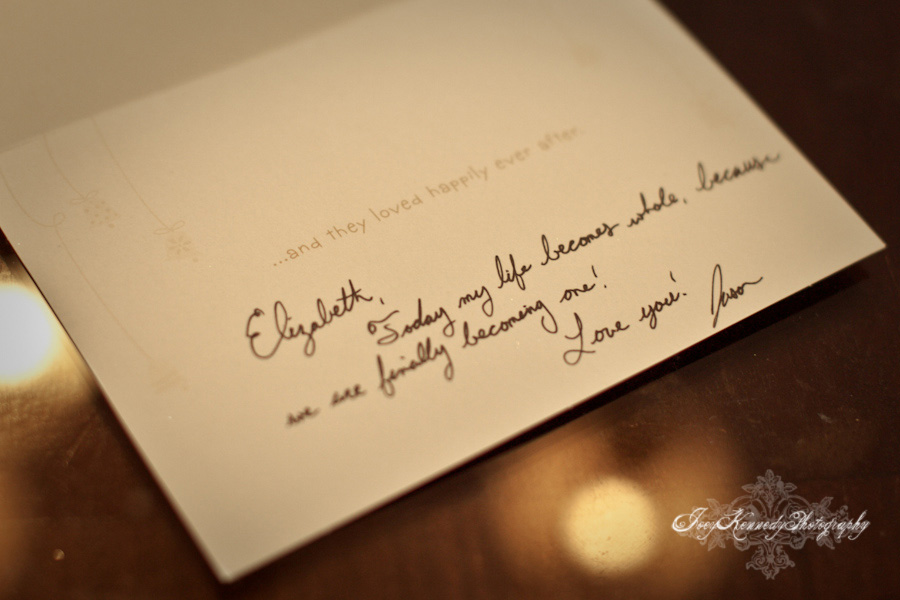 ...and they loved happily ever after.
Elizabeth,
Today my life becomes whole, because
we are finally becoming one!
Love you! Jason
JoeyKennedyPhotography